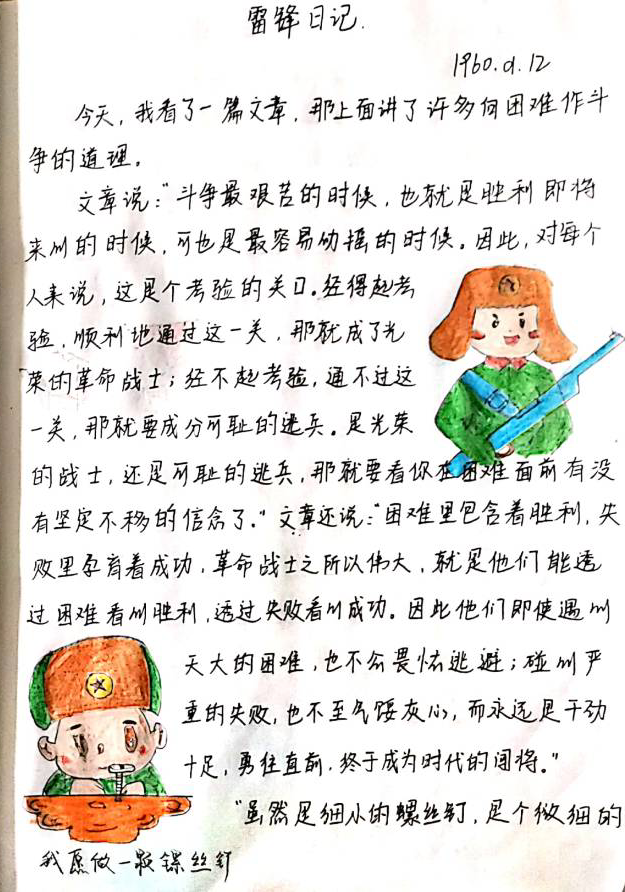 雷锋日记.
1960.a.12
今天，我看了一篇文章，那上面讲了许多向困难作斗
争的道理。
文章说：“斗争最艰苦的时候，也就是胜利即将
来川的时候，可也是最容易动摇的时候。因此，对每个
人来说，这是个考验的关口。经得起考
验，顺利地通过这一关，那就成了光
荣的革命战士；经不起考验，通不过这
一关，那就要成分可耻的逃兵。是光荣
的战士，还是可耻的逃兵，那就要看你在困难面前有没
有坚定不移的信念了。”文章还说：“困难里包含着胜利，失
败里孕育着成功，革命战士之所以伟大，就是他们能透
过困难看川胜利，透过失败看川成功。因此他们即使遇川
天大的困难，也不会畏怯逃避；碰川严
重的失败，也不至气馁灰心，而永远是干劲
十足，勇往直前，终于成为时代的闯将。”
“虽然是细小的螺丝钉，是个微细的
我愿做一颗螺丝钉